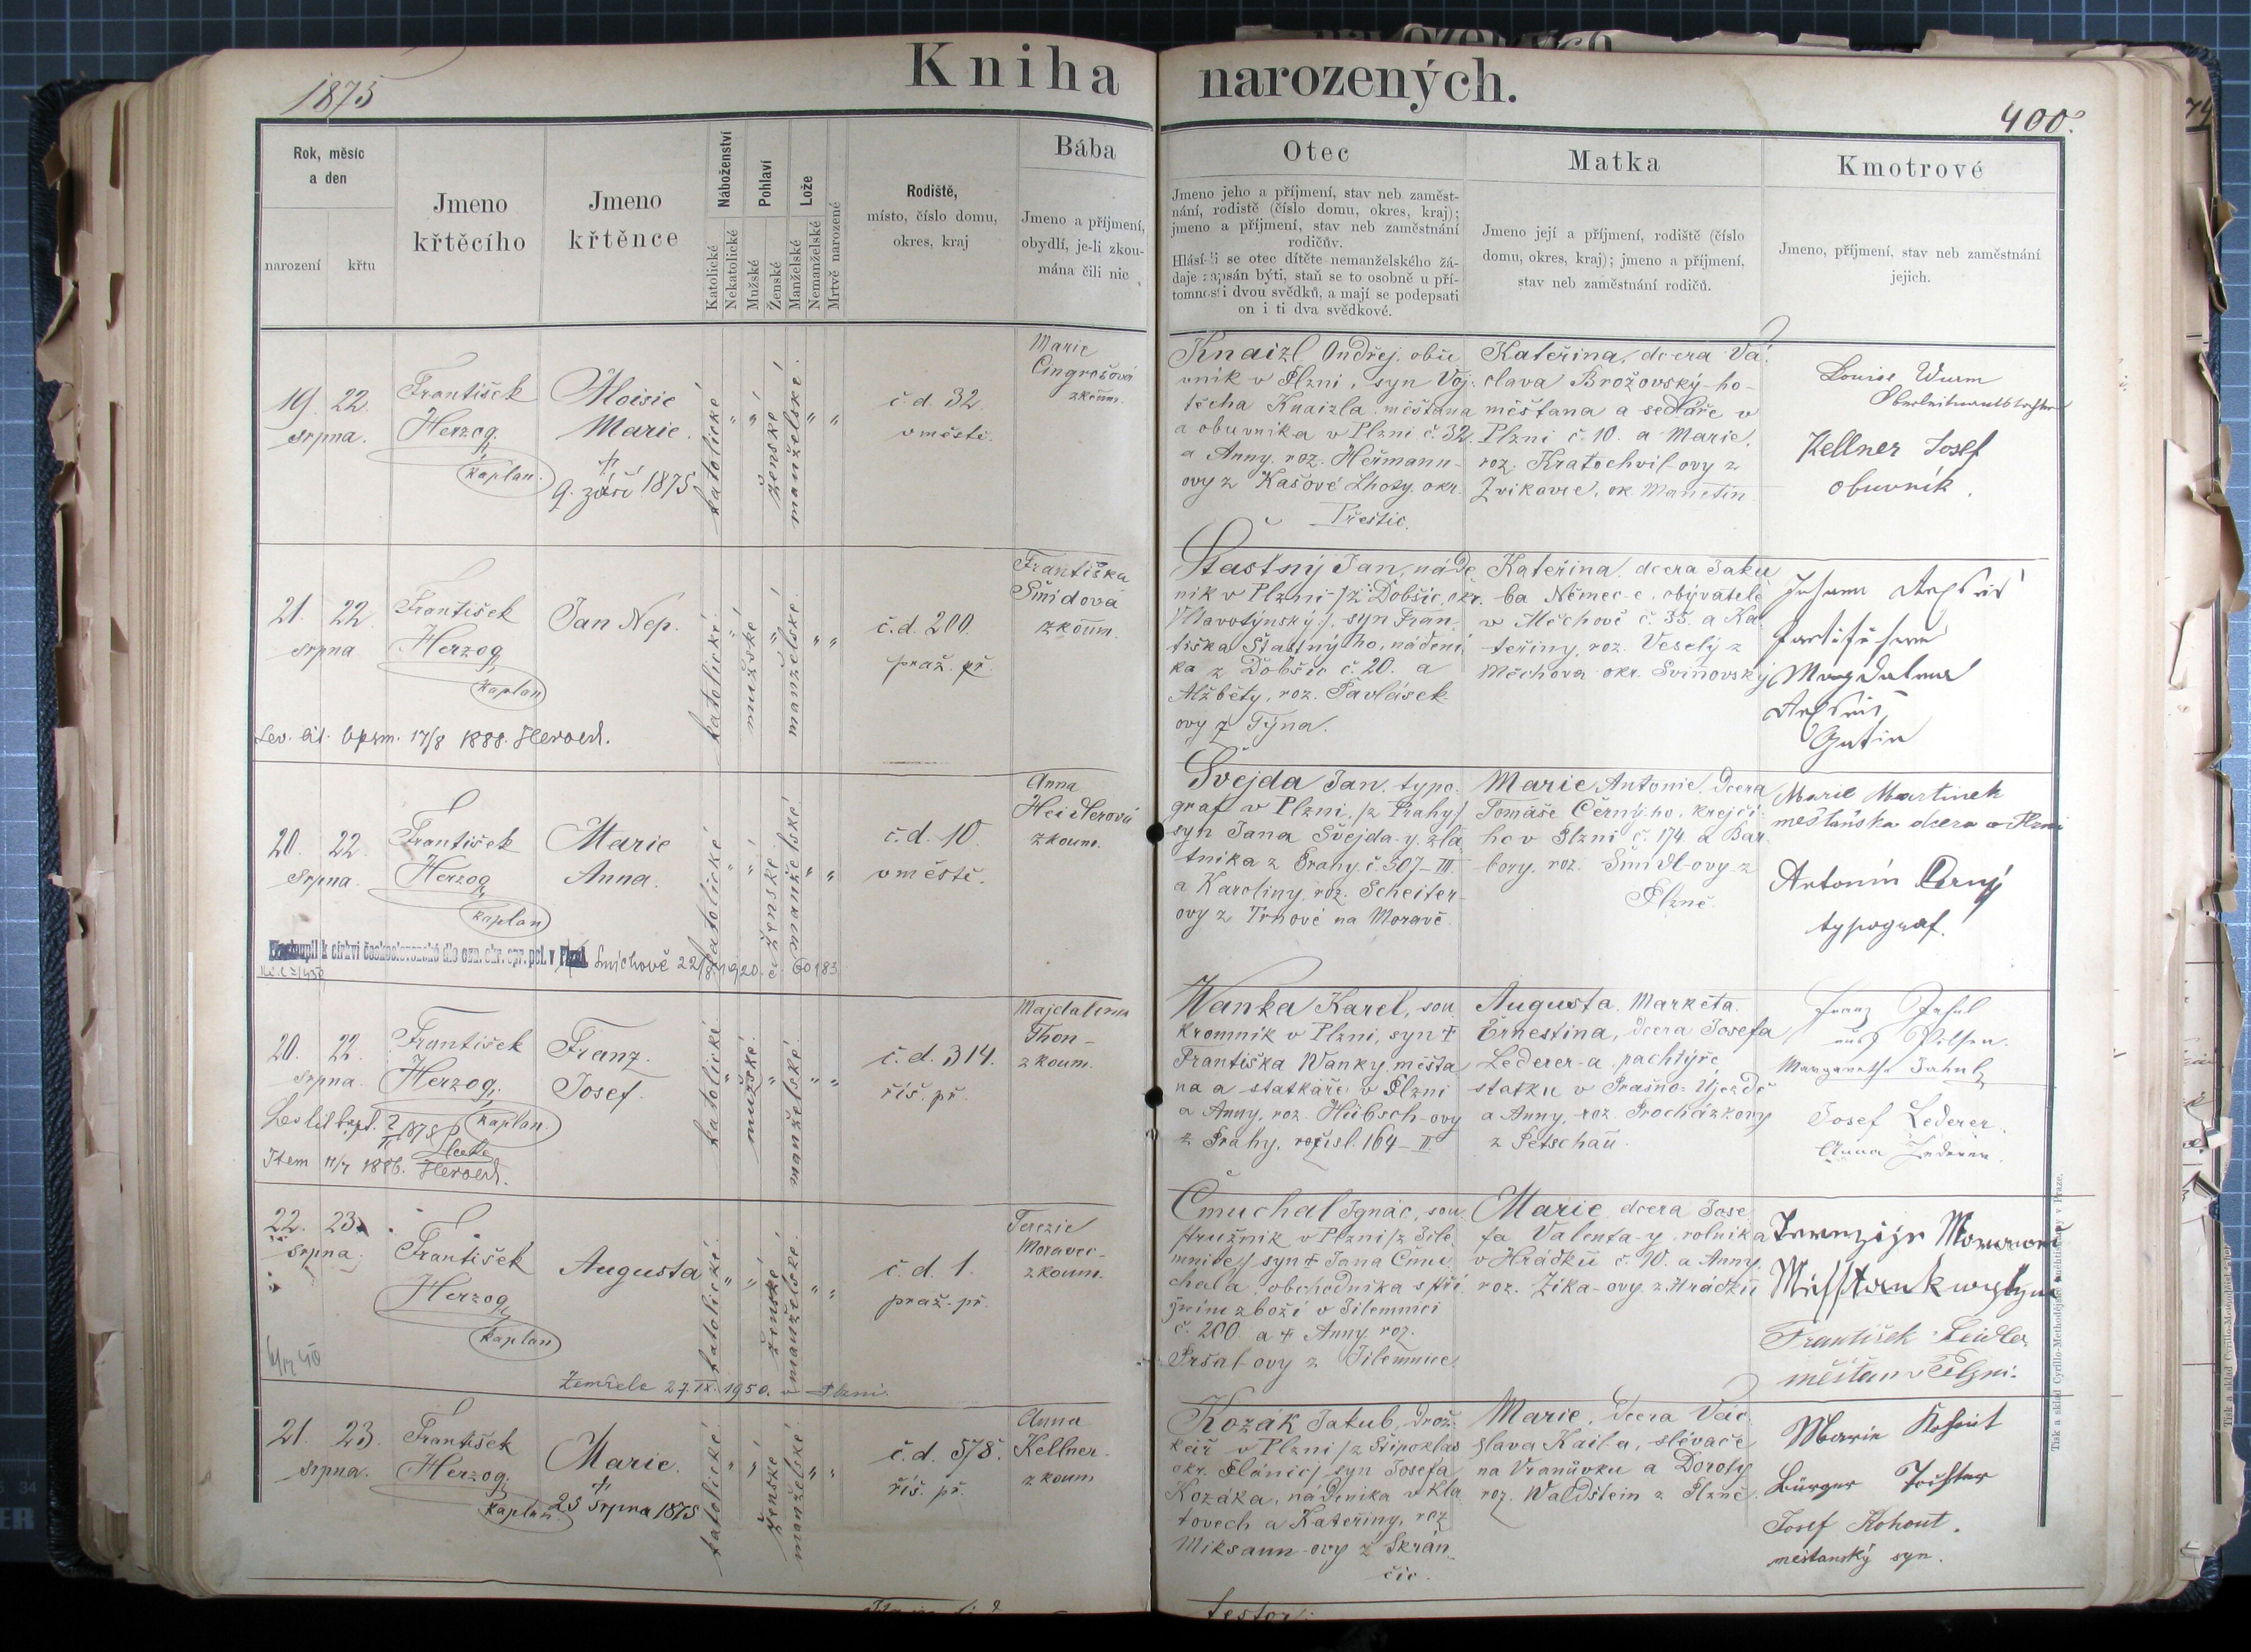 1875
Kniha narozených.
400.
Rok, měsíc
a den
narození křtu
Jmeno
křtěcího
Jmeno
křtěnce
Náboženství
Katolické
Nekatolické
Pohlaví
Mužské
Ženské
Lože
Manželské
Nemanželské
Mrtvě narozené
Rodiště,
místo, číslo domu,
okres, kraj
Bába
Jmeno a příjmení,
obydlí, je-li zkou-
mána čili nic
Otec
Jmeno jeho a příjmení, stav neb zaměst-
nání, rodistě (číslo domu, okres, kraj);
jmeno a příjmení, stav neb zaměstnání
rodičův.
Hlásí-li se otec dítěte nemanželského žá-
daje zapsán býti, staň se to osobně u pří-
tomnosti dvou svědků, a mají se podepsati
on i ti dva svědkové.
Matka
Jmeno její a příjmení, rodiště (číslo
domu, okres, kraj); jmeno a příjmení,
stav neb zaměstnání rodičů.
Kmotrové
Jmeno, příjmení, stav neb zaměstnání
jejich.
19. 22.
srpna.
František
Herzog
kaplan.
Aloisie
Marie.
† 9. září 1875
katolické
" "
ženské
manželské
" "
č. d. 32.
v městě.
Marie
Cingrošová
zkoum.
Knaizl Ondřej, obu
vník v Plzni, syn Voj-
těcha Knaizla, měšťana
a obuvníka v Plzni č. 32.
a Anny, roz. Heřmann-
ovy z Kašové Lhoty, okr.
Přeštic.
Kateřina, dcera Vá
clava Brožovský-ho-
měšťana a sedláře v
Plzni č. 10. a Marie,
roz. Kratochvil-ovy z
Zvíkovce, ok. Manetín
Louise Wurm
Kellner Josef
obuvník.
21. 22.
srpna
František
Herzog
kaplan
Jan Nep.
katolické
"
mužské
"
manželské
" "
č. d. 200.
praž. př.
Františka
Šmídová
zkoum.
Lev. lit. bpsm. 17/8 1888. Herold.
Šťastný Jan, náde
ník v Plzni /z Dobšic, okr.
Vltavotýnský/, syn Fran-
tiška Šťastný ho, nádení
ka z Dobšic č. 20. a
Alžběty, roz. Pavlásek-
ovy z Týna.
Kateřina, dcera Jaku
ba Němec-e, obyvatele
v Měchově č. 35. a Ka
teřiny, roz. Veselý z
Měchova okr. Sviňovský
Johann
Magdalena
Gattin
20. 22.
srpna.
František
Herzog
kaplan
Marie
Anna.
katolické
" "
ženské
manželské
" "
č. d. 10.
v městě.
Anna
Heidlerová
zkoum.
k církvi československé dle ozn. okr. spr. pol. v Smíchově 22/8 1920. č. 60183
Švejda Jan, typo-
graf v Plzni, /z Prahy/
syn Jana Švejda-y, zla
tníka z Prahy č. 507-III
a Karoliny, roz. Scheiter-
ovy z Trnové na Moravě.
Marie Antonie, dcera
Tomáše Černý-ho, krejčí
ho v Plzni č. 174. a Bar-
bory, roz. Šmidl-ovy z
Plzně
Marie Martinek
měšťanska dcera v Plzni
Antonín Černý
typograf.
20. 22.
srpna
František
Herzog.
kaplan.
Franz
Josef.
katolické
"
mužské
"
manželské
" "
č. d. 314.
říš. př.
Majdalena
Thon-
zkoum.
Item 11/7 1886. Herold.
Wanka Karel, sou
kromník v Plzni, syn †
Františka Wanky, měšťa
na a statkáře v Plzni
a Anny, roz. Hübsch-ovy
z Prahy, čísl. 164-II
Augusta Markéta.
Ernestina, dcera Josefa
Lederer-a, pachtýře
statku v Prašno-Újezdě
a Anny, roz. Procházkovy
z Petschau.
Franz
aus Pilsen.
Margaretha
Josef Lederer.
Anna Lederer.
22. 23.
srpna.
František
Herzog
kaplan
Augusta
katolické
" "
ženské
manželské
" "
č. d. 1.
praž. př.
Terezie
Moravec-
zkoum.
Zemřela 27. IX. 1950. v Plzni.
Čmuchal Ignác, sou
stružník v Plzni /z Jile-
mnice/ syn † Jana Čmu-
chala, obchodníka s při
zboží v Jilemnici
č. 200 a † Anny, roz.
Pršal-ovy z Jilemnice
Marie dcera Jose
fa Valenta-y, rolníka
v Hrádku č. 10. a Anny,
roz. Žika-ovy z Hrádku
František Seidler
měšťan v Plzni.
21. 23.
srpna.
František
Herzog.
kaplan.
Marie.
†
25 srpna 1875
katolické
" "
ženské
manželské
" "
č. d. 578.
říš. př.
Anna
Kellner-
zkoum
Kozák Jakub, drož-
kář v Plzni /z Štipoklas
okr. Plánic/ syn Josefa
Kozáka, nádeníka v Kla
tovech a Kateřiny, roz
Miksaun-ovy z Skrán-
čic.
Marie, dcera Vác-
slava Kaila, slévače
na Vranůvku a Doroty
roz. Waldstein z Plzně.
Marie Kohout
Bürger Tochter
Josef Kohout.
měšťanský syn.
Tisk a sklad Cyrillo-Methodějské knihtiskárny v Praze.